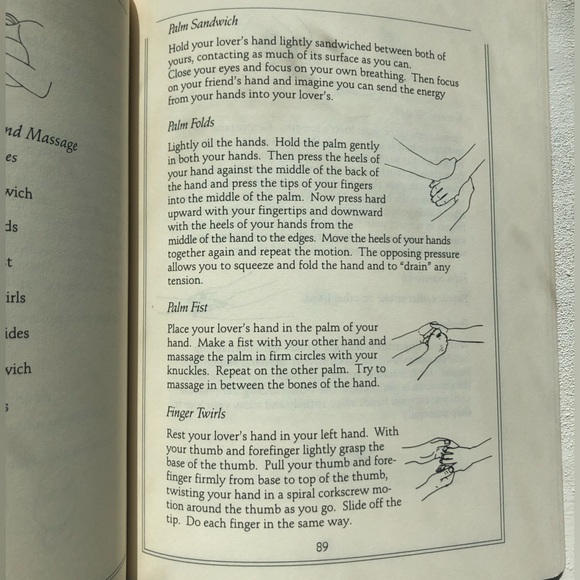 nd Massage
es
wich
ds
t
irls
ides
wich
s
Palm Sandwich
Hold your lover's hand lightly sandwiched between both of
yours, contacting as much of its surface as you can.
Close your eyes and focus on your own breathing. Then focus
on your friend's hand and imagine you can send the energy
from your hands into your lover's.
Palm Folds
Lightly oil the hands. Hold the palm gently
in both your hands. Then press the heels of
your hand against the middle of the back of
the hand and press the tips of your fingers
into the middle of the palm. Now press hard
upward with your fingertips and downward
with the heels of your hands from the
middle of the hand to the edges. Move the heels of your hands
together again and repeat the motion. The opposing pressure
allows you to squeeze and fold the hand and to "drain" any
tension.
Palm Fist
Place your lover's hand in the palm of your
hand. Make a fist with your other hand and
massage the palm in firm circles with your
knuckles. Repeat on the other palm. Try to
massage in between the bones of the hand.
Finger Twirls
Rest your lover's hand in your left hand. With
your thumb and forefinger lightly grasp the
base of the thumb. Pull your thumb and fore-
finger firmly from base to top of the thumb,
twisting your hand in a spiral corkscrew mo-
tion around the thumb as you go. Slide off the
tip. Do each finger in the same way.
89